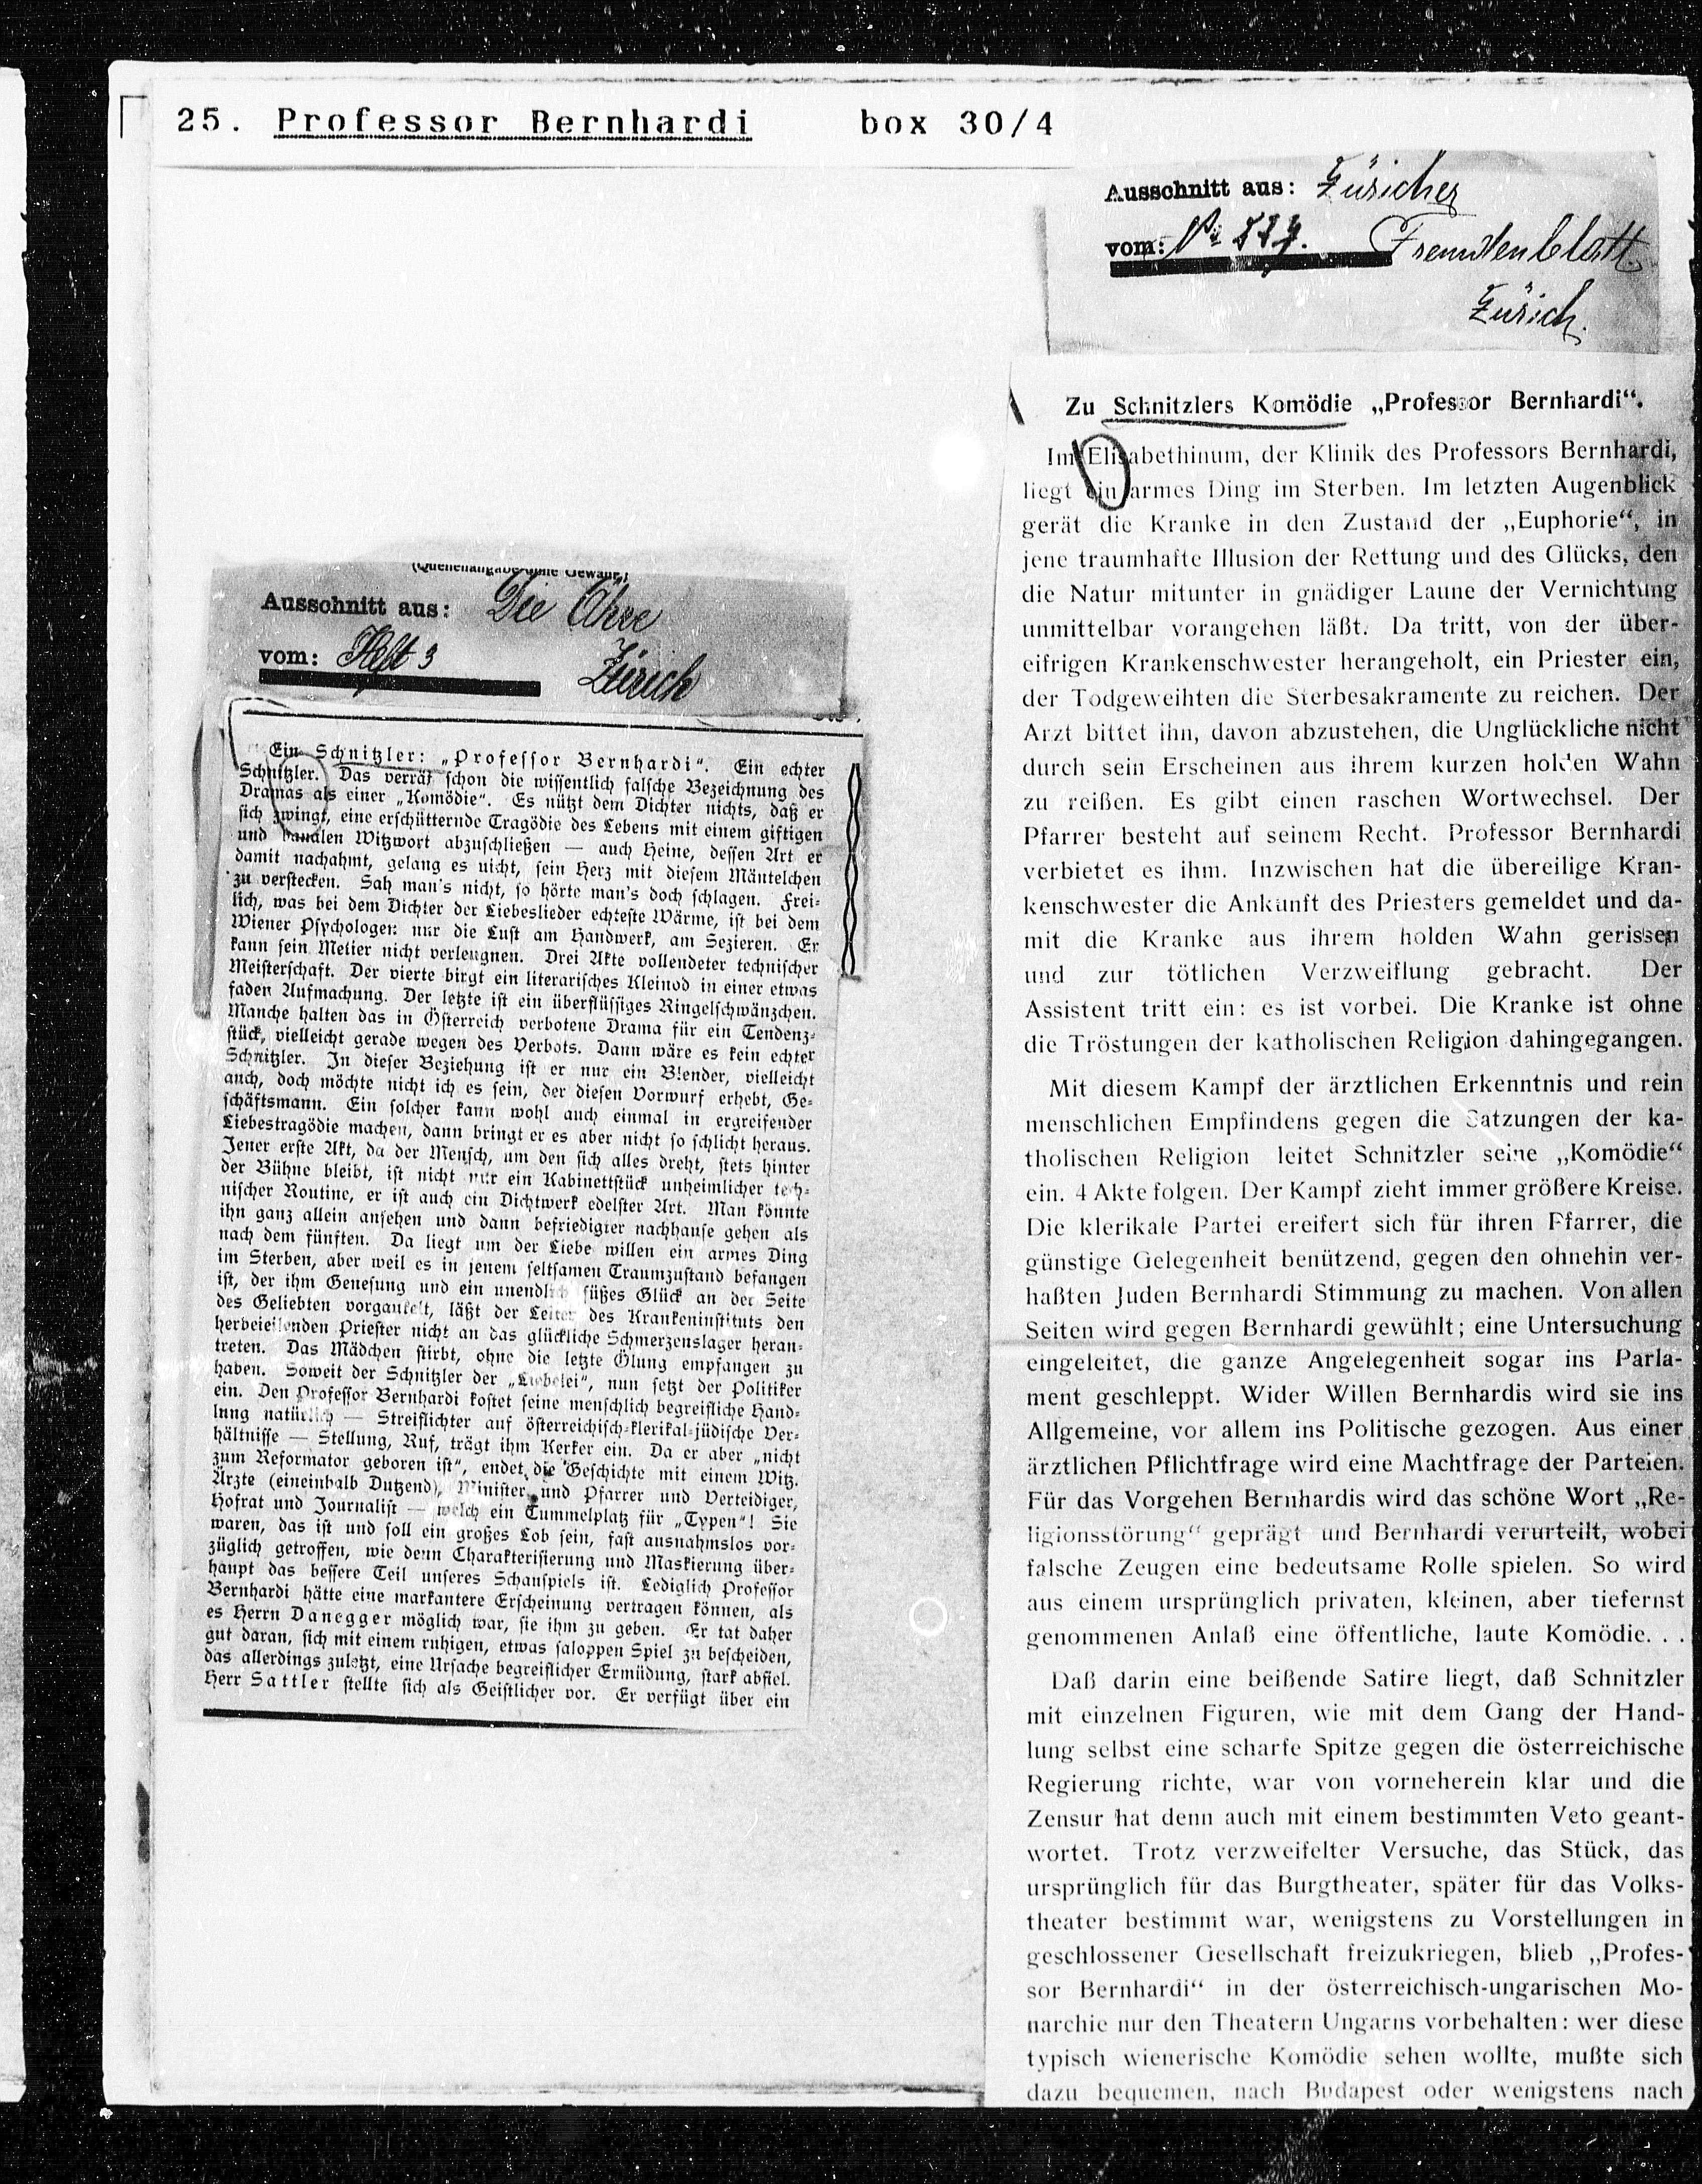 25. Professor Bernhardi box 30/4
(Quellenangabe ohne Gewähr.)
Ausschnitt aus: Die Ähre
vom: Heft 3
Zürich
Ein Schnitzler: „Professor Bernhardi“. Ein echter
Schnitzler. Das verrät schon die wissentlich falsche Bezeichnung des
Dramas als einer „Komödie“. Es nützt dem Dichter nichts, daß er
sich zwingt, eine erschütternde Tragödie des Lebens mit einem giftigen
und banalen Witzwort abzuschließen — auch Heine, dessen Art er
damit nachahmt, gelang es nicht, sein Herz mit diesem Mäntelchen
zu verstecken. Sah man's nicht, so hörte man's doch schlagen. Frei-
lich, was bei dem Dichter der Liebeslieder echteste Wärme, ist bei dem
Wiener Psychologen nur die Lust am Handwerk, am Sezieren. Er
kann sein Metier nicht verleugnen. Drei Akte vollendeter technischer
Meisterschaft. Der vierte birgt ein literarisches Kleinod in einer etwas
faden Aufmachung. Der letzte ist ein überflüssiges Ringelschwänzchen.
Manche halten das in Österreich verbotene Drama für ein Tendenz-
stück, vielleicht gerade wegen des Verbots. Dann wäre es kein echter
Schnitzler. In dieser Beziehung ist er nur ein Blender, vielleicht
auch, doch möchte nicht ich es sein, der diesen Vorwurf erhebt, Ge-
schäftsmann. Ein solcher kann wohl auch einmal in ergreifender
Liebestragödie machen, dann bringt er es aber nicht so schlicht heraus.
Jener erste Akt, da der Mensch, um den sich alles dreht, stets hinter
der Bühne bleibt, ist nicht nur ein Kabinettstück unheimlicher tech-
nischer Routine, er ist auch ein Dichtwerk edelster Art. Man könnte
ihn ganz allein ansehen und dann befriedigter nachhause gehen als
nach dem fünften. Da liegt um der Liebe willen ein armes Ding
im Sterben, aber weil es in jenem seltsamen Traumzustand befangen
ist, der ihm Genesung und ein unendlich süßes Glück an der Seite
des Geliebten vorgaukelt, läßt der Leiter des Krankeninstituts den
herbeieilenden Priester nicht an das glückliche Schmerzenslager heran-
treten. Das Mädchen stirbt, ohne die letzte Ölung empfangen zu
haben. Soweit der Schnitzler der „Liebelei“, nun setzt der Politiker
ein. Den Professor Bernhardi kostet seine menschlich begreifliche Hand-
lung natürlich — Streiflichter auf österreichisch-klerikal-jüdische Ver-
hältnisse — Stellung, Ruf, trägt ihm Kerker ein. Da er aber „nicht
zum Reformator geboren ist“, endet die Geschichte mit einem Witz.
Ärzte (eineinhalb Dutzend), Minister und Pfarrer und Verteidiger,
Hofrat und Journalist — welch ein Tummelplatz für „Typen“! Sie
waren, das ist und soll ein großes Lob sein, fast ausnahmslos vor-
züglich getroffen, wie denn Charakterisierung und Maskierung über-
haupt das bessere Teil unseres Schauspiels ist. Lediglich Professor
Bernhardi hätte eine markantere Erscheinung vertragen können, als
es Herrn Danegger möglich war, sie ihm zu geben. Er tat daher
gut daran, sich mit einem ruhigen, etwas saloppen Spiel zu bescheiden,
das allerdings zuletzt, eine Ursache begreiflicher Ermüdung, stark abfiel.
Herr Sattler stellte sich als Geistlicher vor. Er verfügt über ein
Ausschnitt aus: Züricher
vom: Fremdenblatt.
Zürich.
Zu Schnitzlers Komödie „Professor Bernhardi“.
Im Elisabethinum, der Klinik des Professors Bernhardi,
liegt ein armes Ding im Sterben. Im letzten Augenblick
gerät die Kranke in den Zustand der „Euphorie“, in
jene traumhafte Illusion der Rettung und des Glücks, den
die Natur mitunter in gnädiger Laune der Vernichtung
unmittelbar vorangehen läßt. Da tritt, von der über-
eifrigen Krankenschwester herangeholt, ein Priester ein,
der Todgeweihten die Sterbesakramente zu reichen. Der
Arzt bittet ihn, davon abzustehen, die Unglückliche nicht
durch sein Erscheinen aus ihrem kurzen holden Wahn
zu reißen. Es gibt einen raschen Wortwechsel. Der
Pfarrer besteht auf seinem Recht. Professor Bernhardi
verbietet es ihm. Inzwischen hat die übereilige Kran-
kenschwester die Ankunft des Priesters gemeldet und da-
mit die Kranke aus ihrem holden Wahn gerissen
und zur tötlichen Verzweiflung gebracht. Der
Assistent tritt ein: es ist vorbei. Die Kranke ist ohne
die Tröstungen der katholischen Religion dahingegangen.
Mit diesem Kampf der ärztlichen Erkenntnis und rein
menschlichen Empfindens gegen die Satzungen der ka-
tholischen Religion leitet Schnitzler seine „Komödie“
ein. 4 Akte folgen. Der Kampf zieht immer größere Kreise.
Die klerikale Partei ereifert sich für ihren Pfarrer, die
günstige Gelegenheit benützend, gegen den ohnehin ver-
haßten Juden Bernhardi Stimmung zu machen. Von allen
Seiten wird gegen Bernhardi gewühlt; eine Untersuchung
eingeleitet, die ganze Angelegenheit sogar ins Parla-
ment geschleppt. Wider Willen Bernhardis wird sie ins
Allgemeine, vor allem ins Politische gezogen. Aus einer
ärztlichen Pflichtfrage wird eine Machtfrage der Parteien.
Für das Vorgehen Bernhardis wird das schöne Wort „Re-
ligionsstörung“ geprägt und Bernhardi verurteilt, wobei
falsche Zeugen eine bedeutsame Rolle spielen. So wird
aus einem ursprünglich privaten, kleinen, aber tiefernst
genommenen Anlaß eine öffentliche, laute Komödie. . .
Daß darin eine beißende Satire liegt, daß Schnitzler
mit einzelnen Figuren, wie mit dem Gang der Hand-
lung selbst eine scharfe Spitze gegen die österreichische
Regierung richte, war von vorneherein klar und die
Zensur hat denn auch mit einem bestimmten Veto geant-
wortet. Trotz verzweifelter Versuche, das Stück, das
ursprünglich für das Burgtheater, später für das Volks-
theater bestimmt war, wenigstens zu Vorstellungen in
geschlossener Gesellschaft freizukriegen, blieb „Profes-
sor Bernhardi“ in der österreichisch-ungarischen Mo-
narchie nur den Theatern Ungarns vorbehalten: wer diese
typisch wienerische Komödie sehen wollte, mußte sich
dazu bequemen, nach Budapest oder wenigstens nach